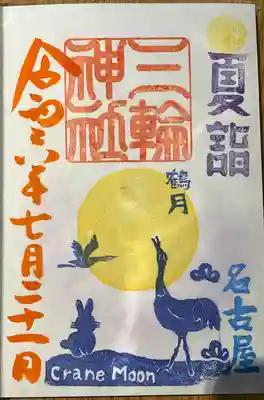 夏詣
三輪
神社
鶴月
名古屋
令和六年七月二十一日
Crane Moon